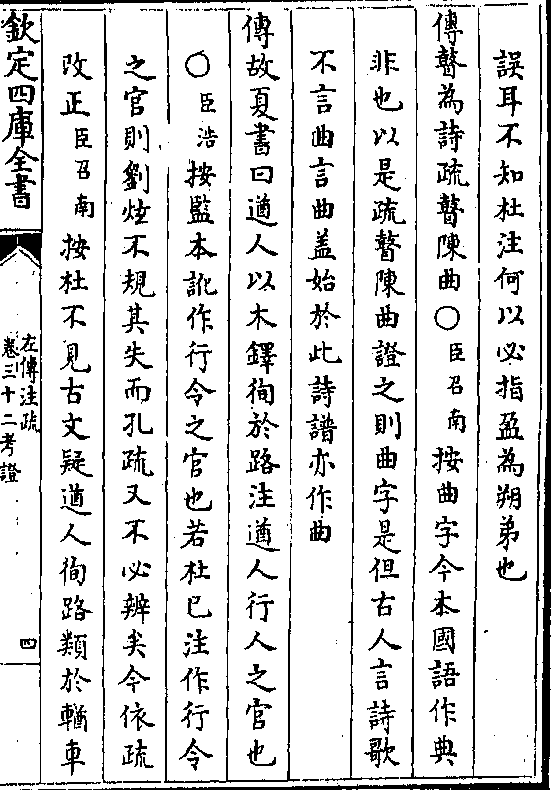 誤耳不知杜注何以必指盈為朔弟也
傳瞽為詩疏瞽陳曲○臣召南按曲字今本國語作典
非也以是疏瞽陳曲證之則曲字是但古人言詩歌
不言曲言曲盖始於此詩譜亦作曲
傳故夏書曰遒人以木鐸徇於路注遒人行人之官也
○臣浩按監本訛作行令之官也若杜已注作行令
之官則劉炫不規其失而孔疏又不必辨矣今依疏
改正臣召南按杜不見古文疑遒人徇路類於輶車
欽定四庫全書
左傳注疏
卷三十二考證
四